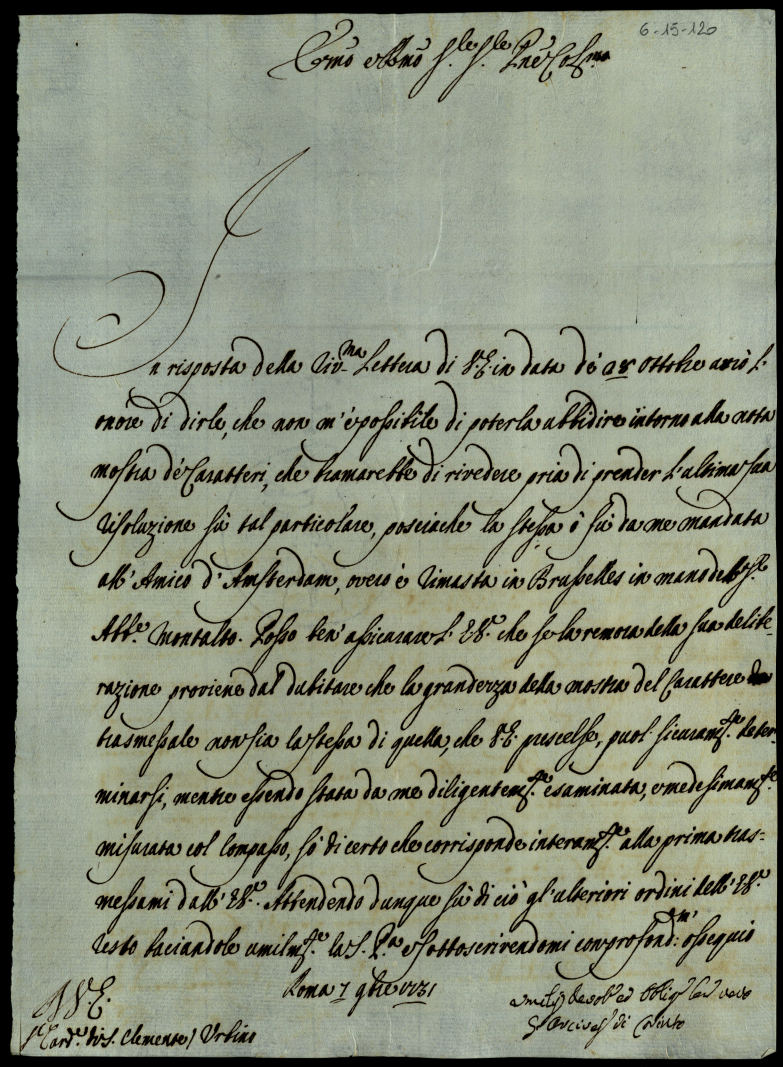 6-15-120
Em̃o e Rm̃o S.re S.re Pñe Col.mo
In risposta della riv.ma Lettera di V.E. in data dé 28 Ottobre avrò l'
onore di dirle, che non m'é possibile di poterla ubbidire intorno alla nota
mostra dé Caratteri, che bramarebbe di rivedere pria di prender l'ultima sua
risoluzione sù tal particolare, posciache la stessa ò fù da me mandata
all'Amico d'Amsterdam, overo é rimasta in Brusselles in mano dell S.r
Abb.e Montalto. Posso ben' assicurare l'E.V.ra che se la remora della sua delibe-
razione proviene dal dubitare che la grandezza della mostra del Carattere
trasmessale non sia la stessa di quella, che V.E. prescelse, puol sicuram.te deter-
minarsi, mentre essendo stata da me diligentem.te esaminata, e medesimam.te
misurata col compasso, sò di certo che corrisponde interam.te alla prima tras-
messami dall'E.V.ra. Attendendo dunque sù di ciò gl'ulteriori ordini dell'E.V.ra
resto baciandole umilm.te la S. P.ra e sottoscrivendomi con profond.mo ossequio
Di V.E.
Roma 7 9bre 1731
S.r Card.le di S. Clemente / Urbino
Umiliss. devot. ed obblig. ser. vero
G. Arcives. di Corinto